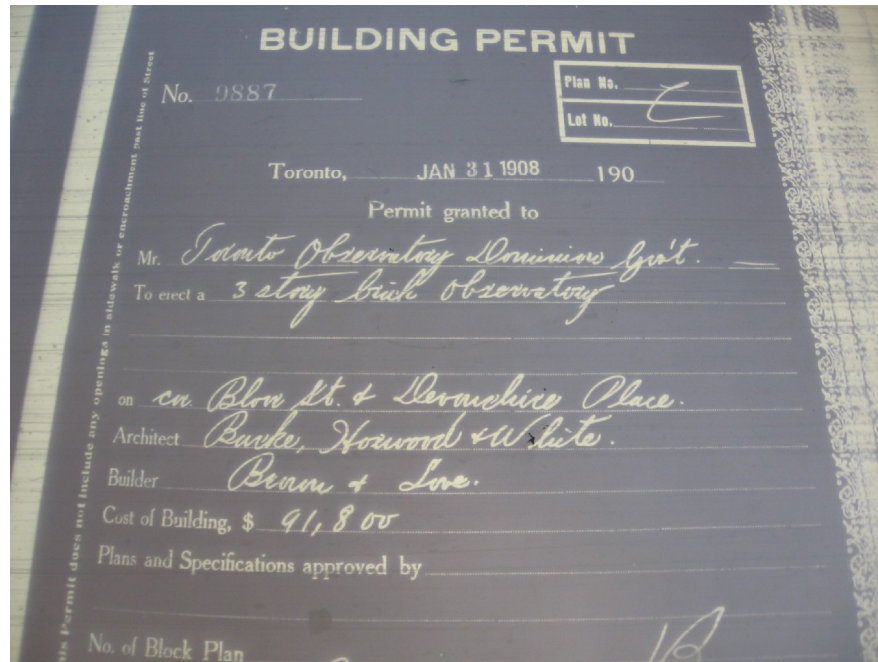 BUILDING PERMIT
No. 9887
Plan No.
Lot No.
Toronto, JAN 31 1908 190
Permit granted to
Mr. Toronto Observatory Dominion Gov't.
To erect a 3 story brick Observatory
on cor. Bloor St. & Devonshire Place.
Architect Burke, Horwood & White.
Builder Brown & Love.
Cost of Building, $ 91,800
Plans and Specifications approved by
No. of Block Plan
his Permit does not include any openings in sidewalk or encroachment past line of Street